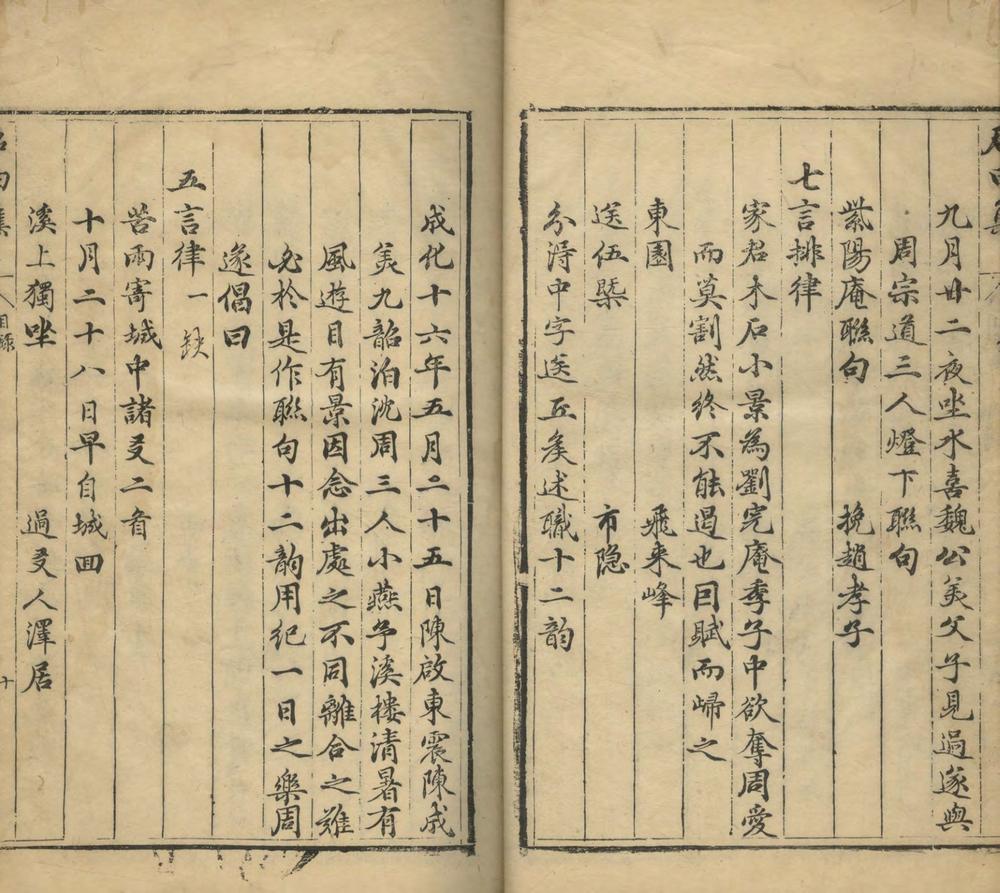 九月廿二夜坐水喜魏公美父子見過遂與
周宗道三人燈下聯句
紫陽庵聯句 挽趙孝子
七言排律
家君木石小景為劉完庵季子中欲奪周愛
而莫割然終不能遏也因賦而歸之
東園 飛来峰
送伍槩 市隐
分淂中字送丘矦述職十二韵
成化十六年五月二十五日陳啟東震陳成
美九韶泊沈周三人小燕予溪樓清暑有
風遊目有景因念出處之不同離合之难
必於是作聯句十二韵用纪一日之樂周
遂倡曰
五言律 一缺
苦雨寄城中諸友二首
十月二十八日早自城囬
溪上獨坐 過友人澤居
目録
十